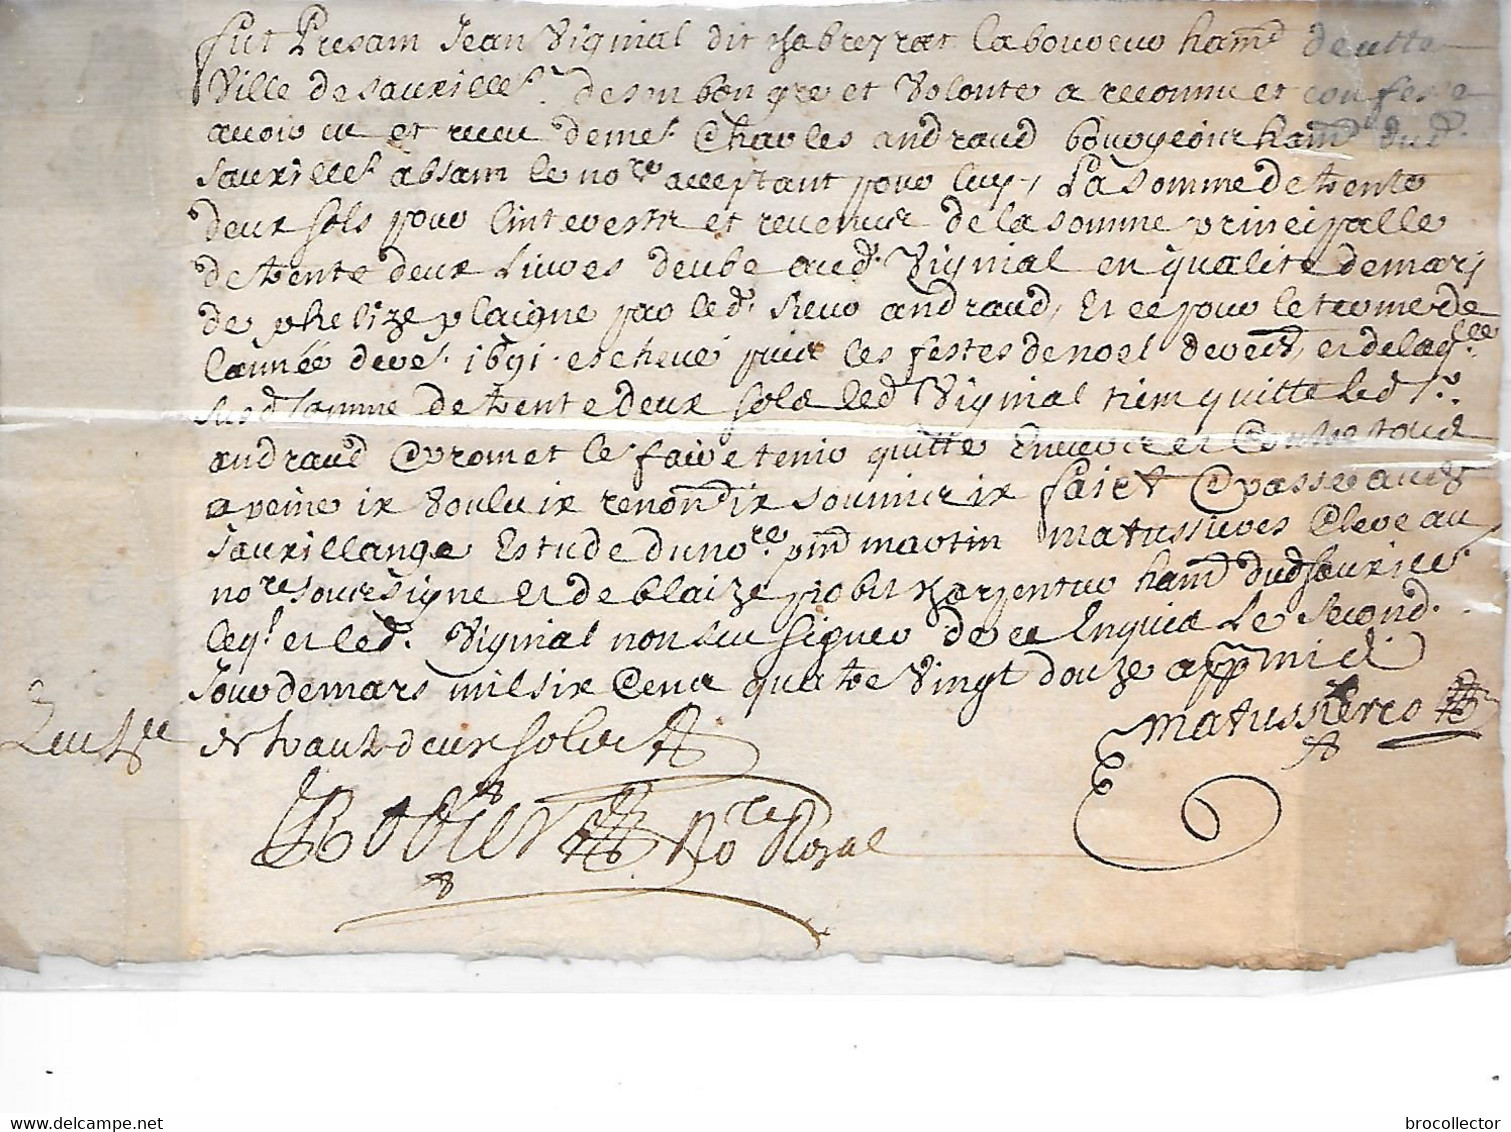 fut Presam Jean Vignial dit chabreyrat laboureur ham d ceste
Ville de sauxille. de son bon gre et volonte a reconnu et confesse
avoir eu et receu de me. Charles andraud bourgeoir ham dud.
sauxille. absam le nore acceptant pour luy, la somme de trente
deux sols pour linterestz et revenuz de la somme prineipalle
de trente deux Livres deube aud. Vignial en qualite de mary
de phelize plaigne par led. sieur andraud, Et ce pour le terme de
lannée dere. 1691. escheue puix les festes de noel dere et de laqlee
susd somme de trente deux sols led Vignial tiem quitte led sr.
andraud promet le faire tenir quitte Envers et Contre tous
a peine ix voulu ix renon ix soumix ix fait & passe aud
sauxillange Estude du nore. pnd martin matussieres Cleve au
nore soursigne et de blaize charpentier ham dud sauxille.
leq. et led. Vignial non sceu signer de ce Enquis Le second.
Jour de mars mil six Cent quatre Vingt douze app midi
de trante deux sols
Matussieres
Rodier Nore Royal
www.delcampe.net
brocollector